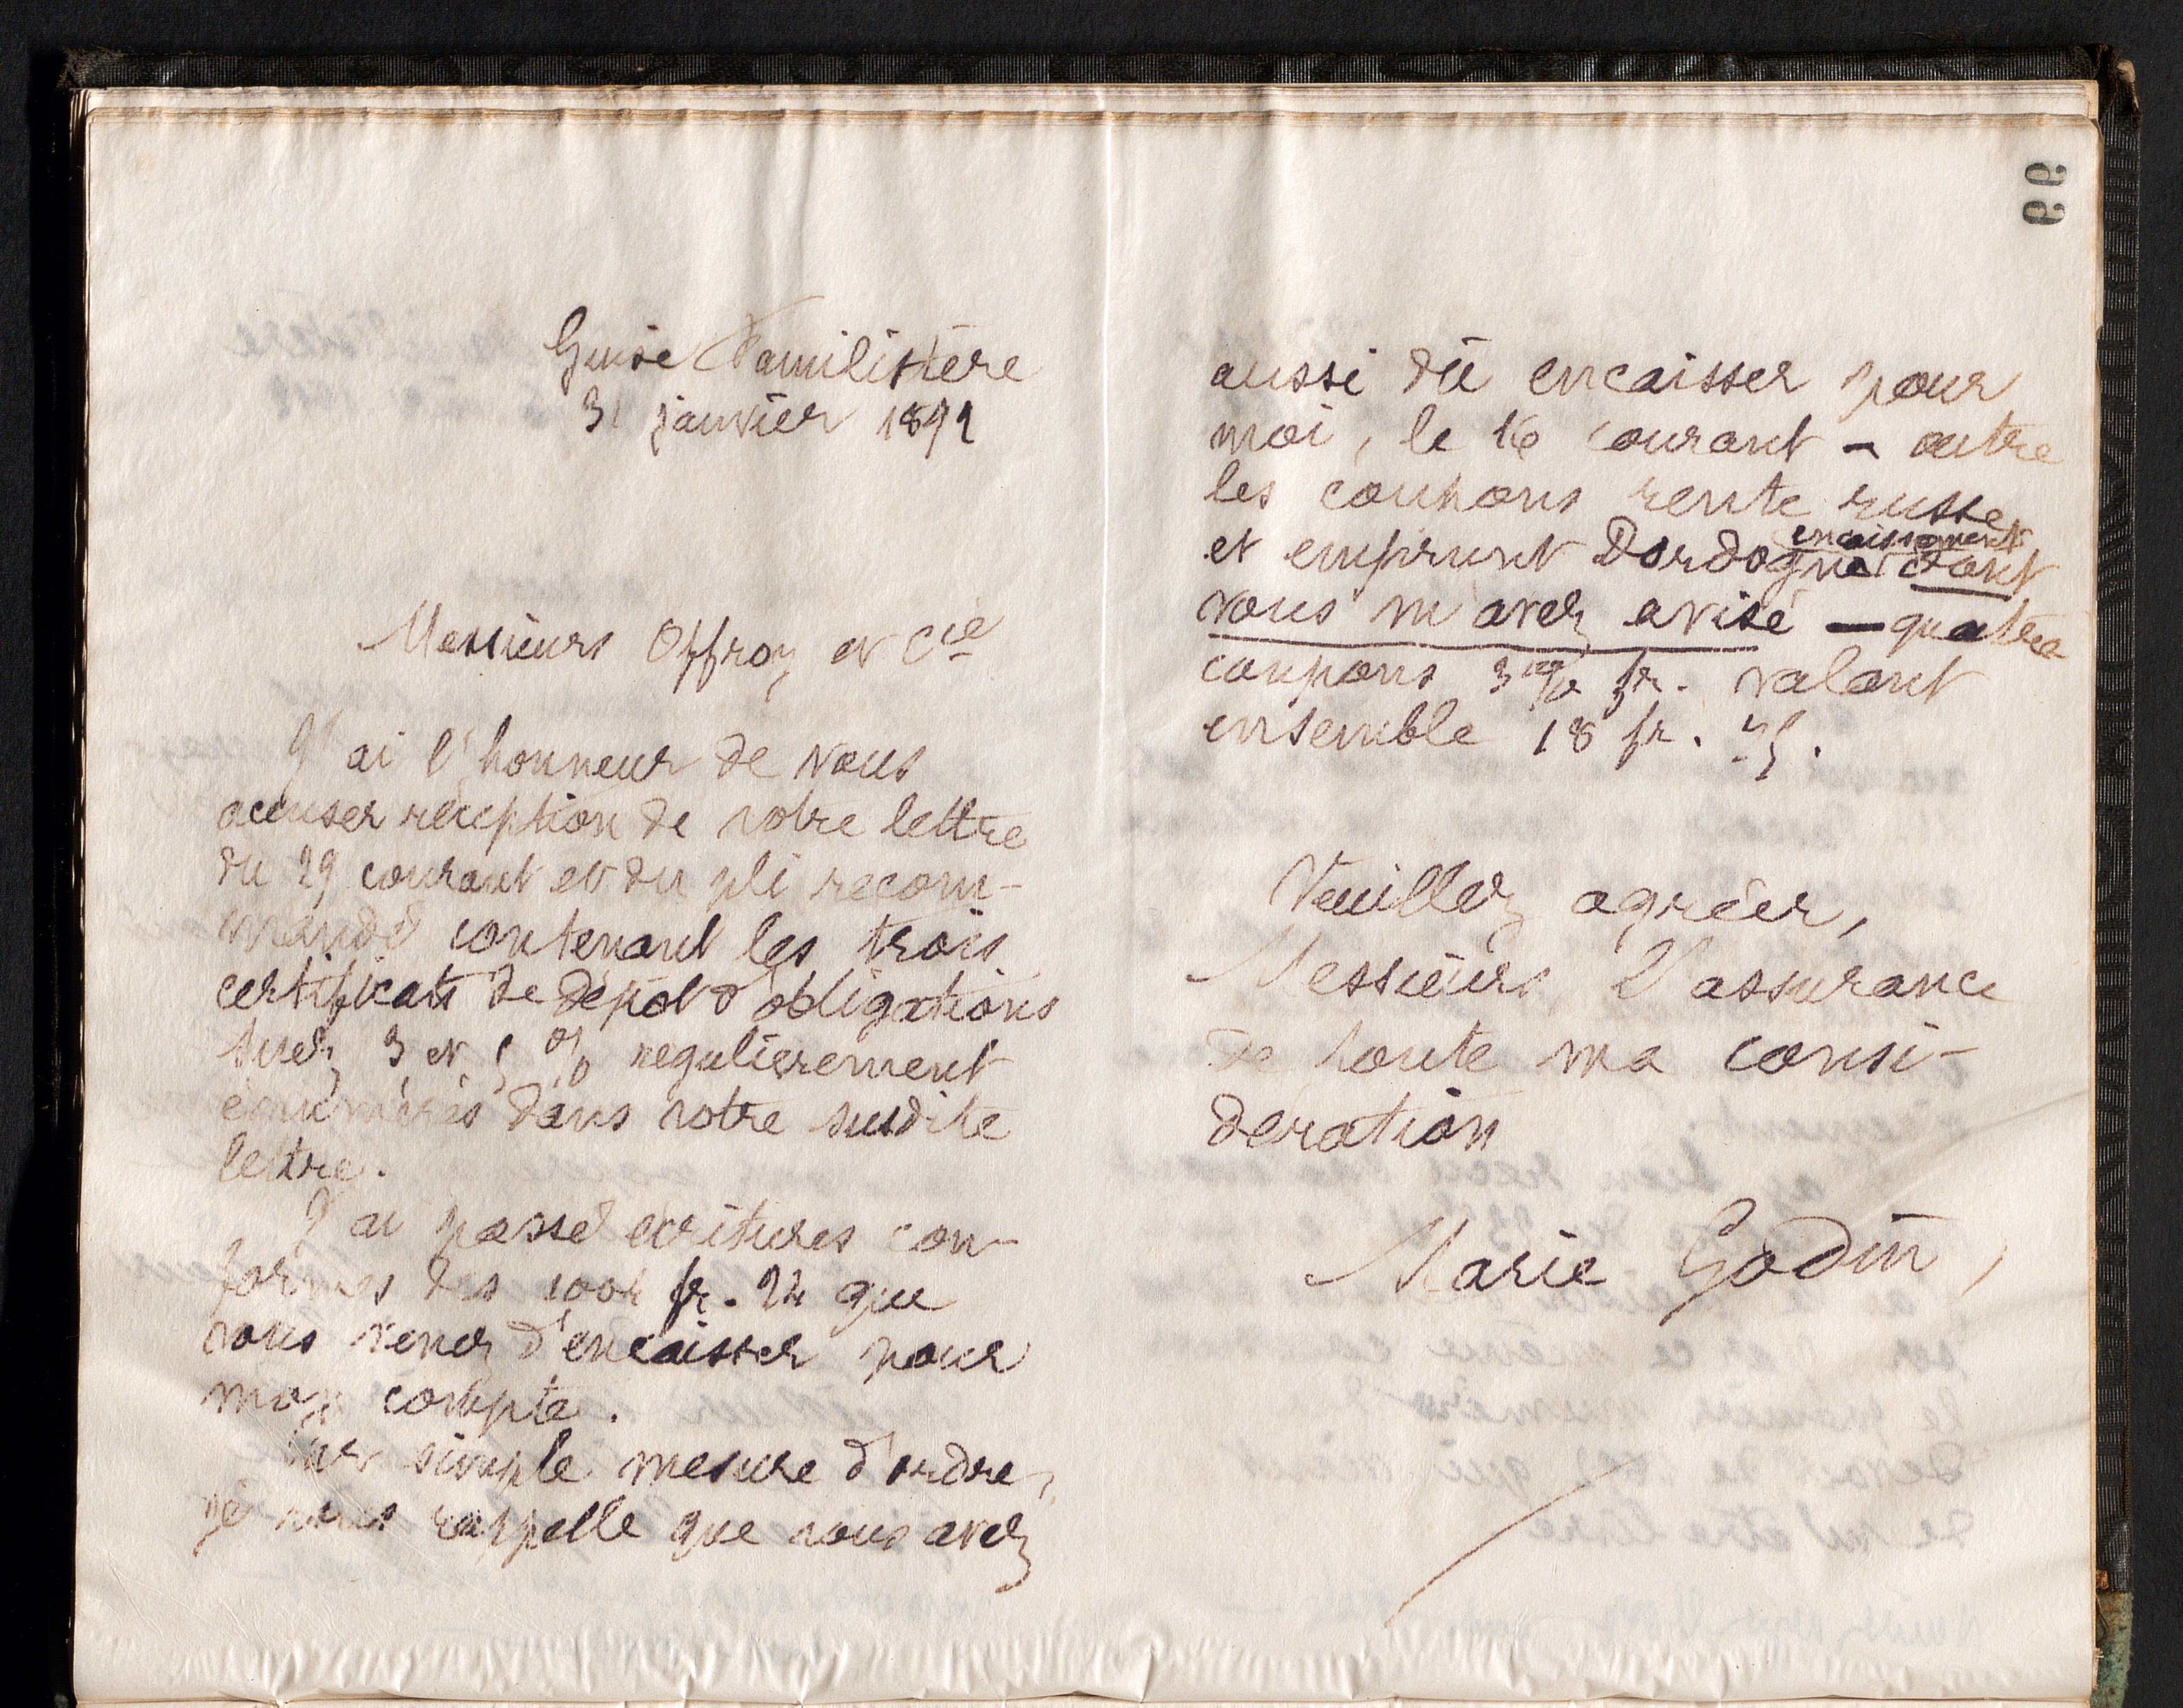 99
Guise Familistère
31 janvier 1891
Messieurs Offroy et Cie
J'ai l'honneur de vous
accuser réception de votre lettre
du 29 courant et du pli recom-
mandé contenant les trois
certificats de dépôt d'obligations
Suez 3 et 5 % regulièrement
énumérés dans votre susdite
lettre.
J'ai passé écritures con-
formes des fr. 24 que
vous venez d'encaisser pour
mon compte.
Par simple mesure d'ordre,
je vous rappelle que vous avez
aussi dû encaisser pour
moi, le 16 courant - outre
les coupons rente russe
et emprunt Dordogne encaissement dont
vous m'avez avisé — quatre
coupons 3 % fr. valant
ensemble 18 fr. 75.
Veuillez agréer,
Messieurs, l'assurance
de toute ma consi-
dération
Marie Godin